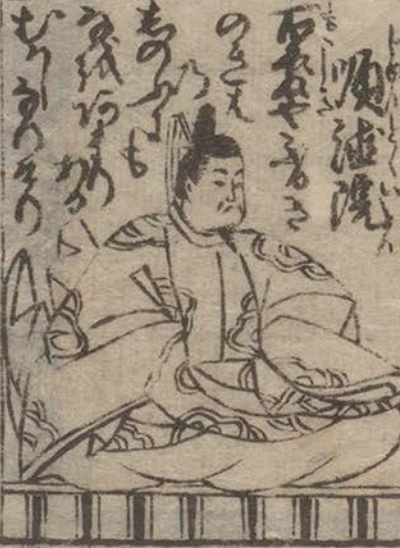 じゆんとくいん
順徳院
百敷やふるき
のきはの
しのふにも
なをあまりある
むかしなりけり